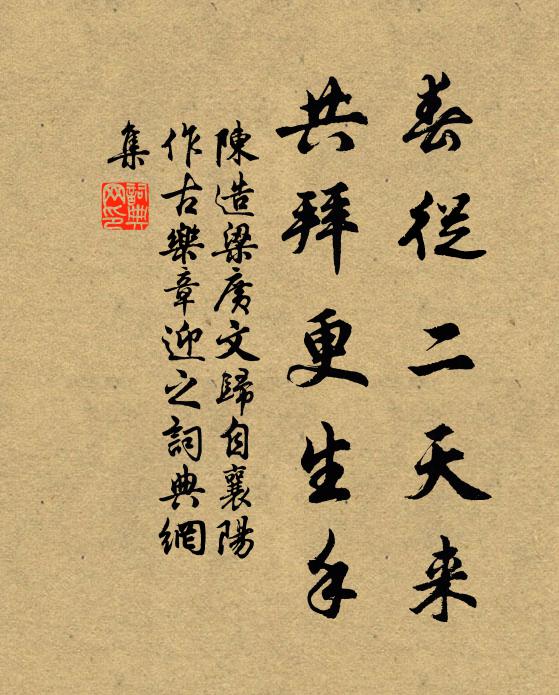 春從二天来
共拜更生手
陳造梁廣文歸自襄陽
作古樂章迎之詞典網
集
詞典
网印